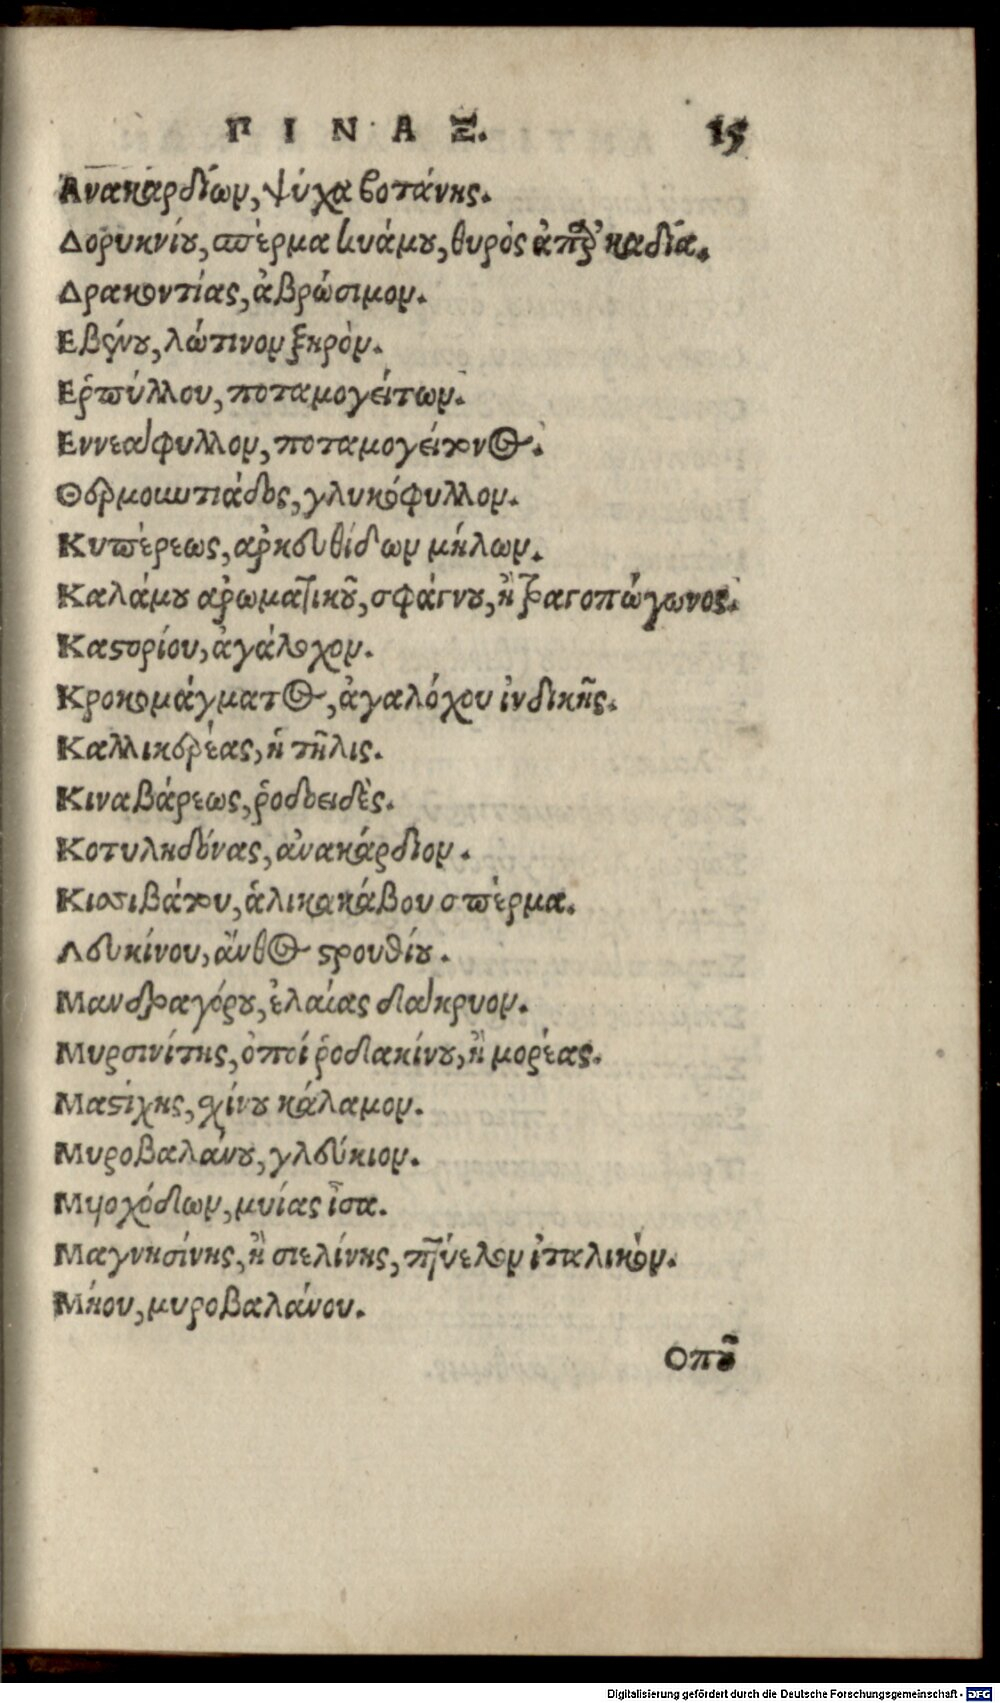 ΠΙΝΑΞ. 15
Ανακαρδίων, ψύχα βοτάνης.
Δορυκνίου, σπέρμα κυάμου, θυρὸς καδία.
Δρακοντίας, ἀβρώσιμον.
Εβένου, λώτινον ξηρὸν.
Ερπύλλου, ποταμογείτων.
Εννεαφυλλον, ποταμογείτονος.
Θερμοκυτιάδος, γλυκόφυλλον.
Κυπέρεως, αρκευθίδων μήλων.
Καλάμου αρωματικοῦ, σφάγνου, ἢ τραγοπώγωνος.
Καστορίου, ἀγάλοχον.
Κροκομάγματος, ἀγαλόχου ἰνδικῆς.
Καλλικερέας, ἡ τῆλις.
Κιναβάρεως, ῥοδοειδὲς.
Κοτυληδόνας, ἀνακάρδιον.
Κισσιβάτου, ἁλικακάβου σπέρμα.
Λευκίνου, ἄνθος στρουθίου.
Μανδραγόρου, ἐλαίας δακρυον.
Μυρσινίτης, ὀποί ῥοδιακίνου, ἢ μορέας.
Μαστίχης, σχίνου κάλαμον.
Μυροβαλάνου, γλεύκιον.
Μυοχόδων, μυίας ἶσα.
Μαγνησίνης, ἢ σιελίνης, πῆ ὑελον ἰταλικόν.
Μήου, μυροβαλάνου.
Οποῦ
Digitalisierung gefördert durch die Deutsche Forschungsgemeinschaft - DFG